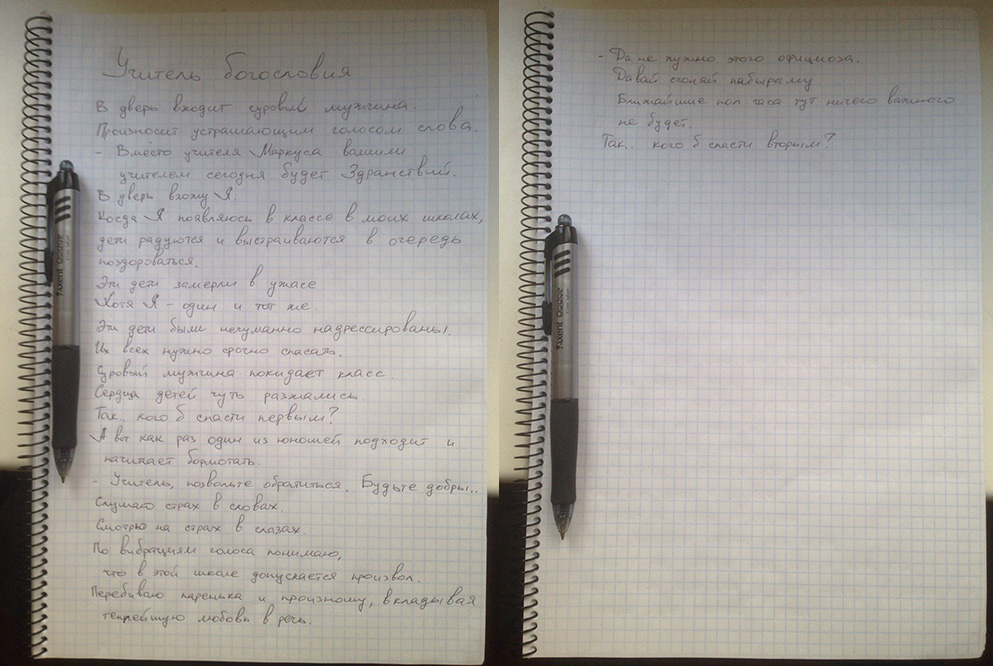 Учитель богословия
В дверь входит суровый мужчина.
Произносит устрашающим голосом слова.
- Вместо учителя Маркуса вашим
учителем сегодня будет Здранствий.
В дверь вхожу Я.
Когда Я появляюсь в классе в моих школах,
дети радуются и выстраиваются в очередь
поздороваться.
Эти дети замерли в ужасе
Хотя Я - один и тот же.
Эти дети были негуманно надрессированы.
Их всех нужно срочно спасать.
Суровый мужчина покидает класс.
Сердца детей чуть разжались
Так.. кого б спасти первым?
А вот как раз один из юношей подходит и
начинает бормотать.
- Учитель, позвольте обратиться. Будьте добры..
Слушаю страх в словах.
Смотрю на страх в глазах.
По вибрациям голоса понимаю,
что в этой школе допускается произвол.
Перебиваю паренька и произношу, вкладывая
теплейшую любовь в речь.
- Да не нужно этого официоза.
Давай сгоняй
Ближайшие пол часа тут ничего важного
не будет.
Так.. кого б спасти вторым?